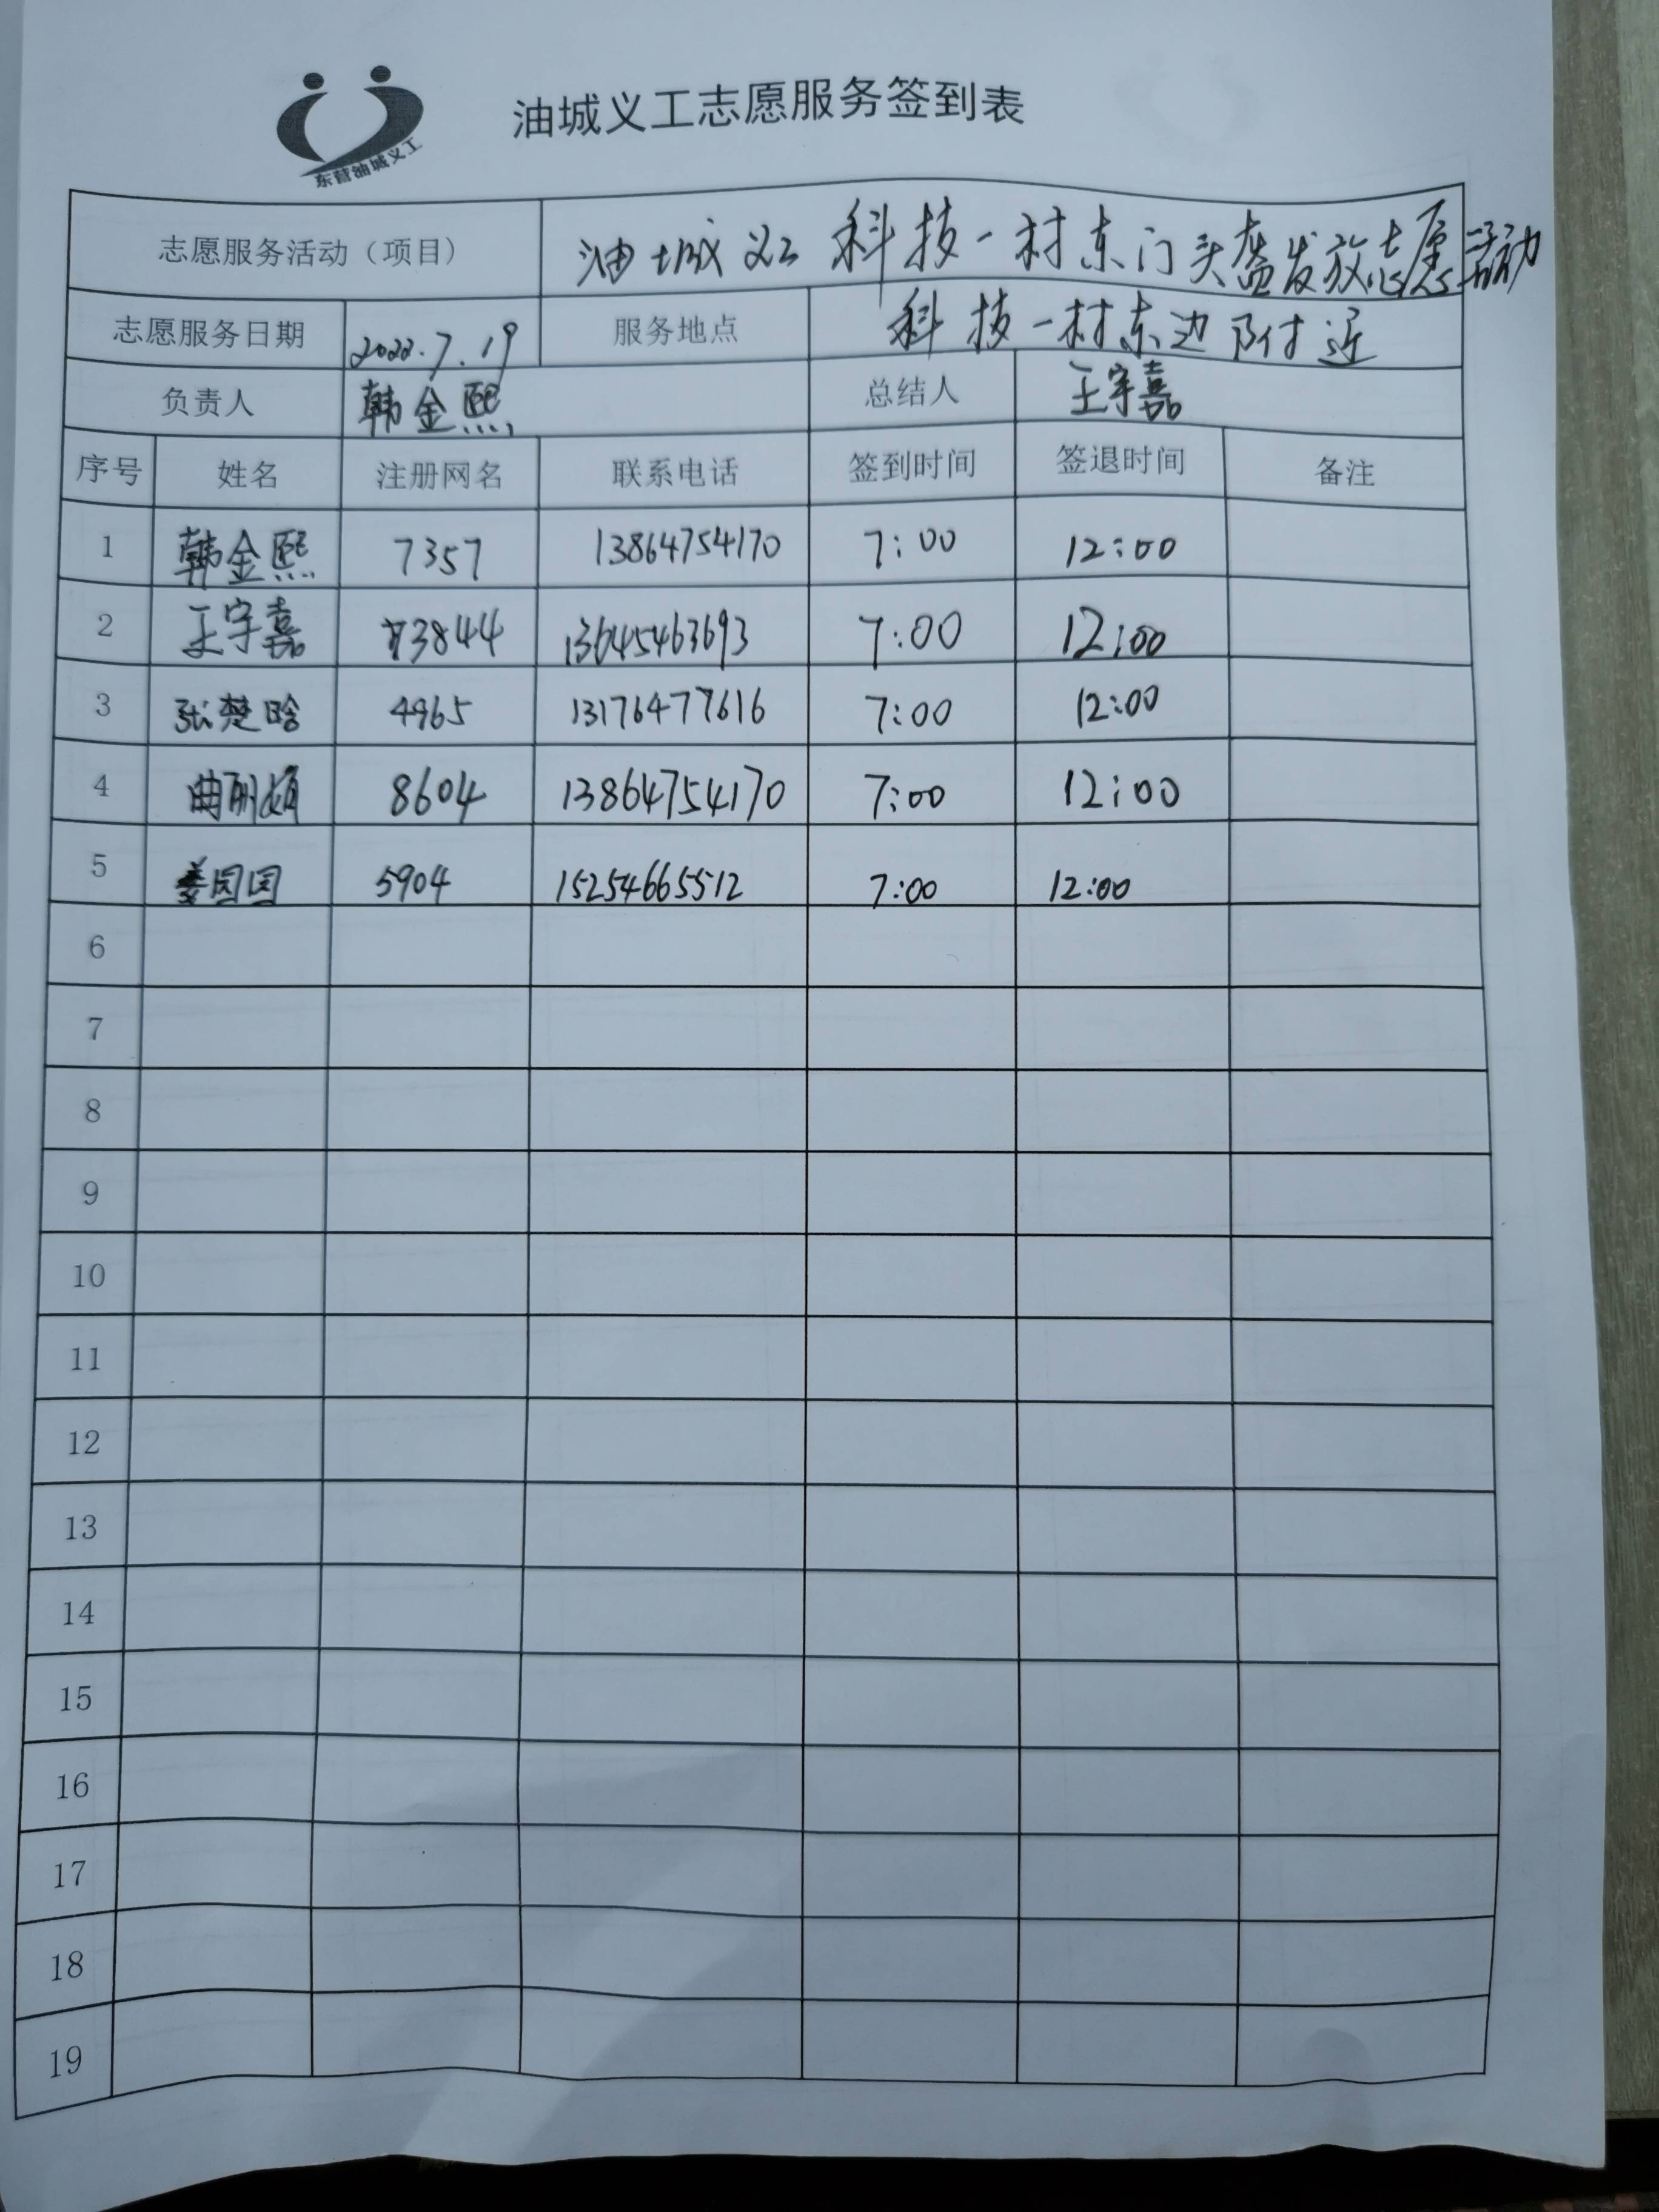 东营油城义工
油城义工志愿服务签到表
志愿服务活动（项目） 油城义工科技一村东门头盔发放志愿活动
志愿服务日期 2022.7.19 服务地点 科技一村东边附近
负责人 韩金熙 总结人 王宇嘉
序号 姓名 注册网名 联系电话 签到时间 签退时间 备注
1 韩金熙 7357 13864754170 7:00 12:00
2 王宇嘉 3844 13645463693 7:00 12:00
3 张楚晗 4965 13176477616 7:00 12:00
4 8604 13864754170 7:00 12:00
5 姜园园 5904 15254665512 7:00 12:00
6
7
8
9
10
11
12
13
14
15
16
17
18
19